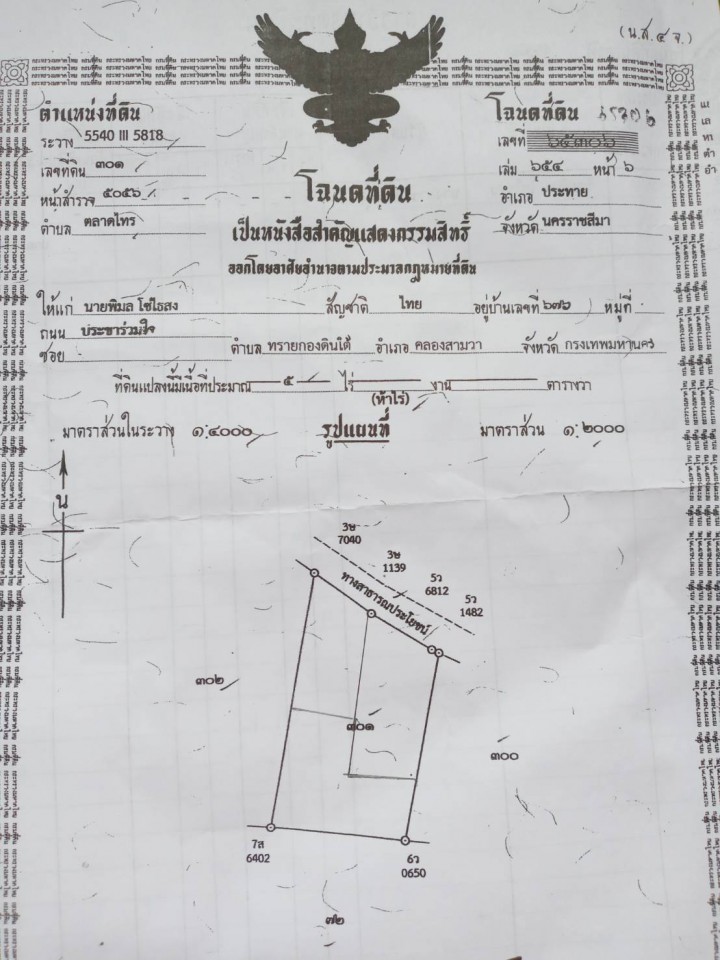 (น.ส.๔ จ.)
ตำแหน่งที่ดิน
ระวาง 5540 III 5818
เลขที่ดิน ๓๐๑
หน้าสำรวจ ๕๐๕๖
ตำบล ตลาดไทร
โฉนดที่ดิน
เป็นหนังสือสำคัญแสดงกรรมสิทธิ์
ออกโดยอาศัยอำนาจตามประมวลกฎหมายที่ดิน
โฉนดที่ดิน
เลขที่ ๖๕๓๐๖
เล่ม ๖๕๔ หน้า ๖
อำเภอ ประทาย
จังหวัด นครราชสีมา
ให้แก่ นายพิมล โซ่ไธสง สัญชาติ ไทย อยู่บ้านเลขที่ ๖๗๖ หมู่ที่
ถนน ประชาร่วมใจ
ซอย ตำบล ทรายกองดินใต้ อำเภอ คลองสามวา จังหวัด กรุงเทพมหานคร
ที่ดินแปลงนี้มีเนื้อที่ประมาณ ๕ ไร่ งาน ตารางวา
(ห้าไร่)
มาตราส่วนในระวาง ๑:๔๐๐๐ รูปแผนที่ มาตราส่วน ๑:๒๐๐๐
น
3ษ
7040
3ษ
1139
5ว
6812
5ว
1482
ทางสาธารณประโยชน์
๓๐๒
๓๐๑
๓๐๐
7ส
6402
6ว
0650
๗๒